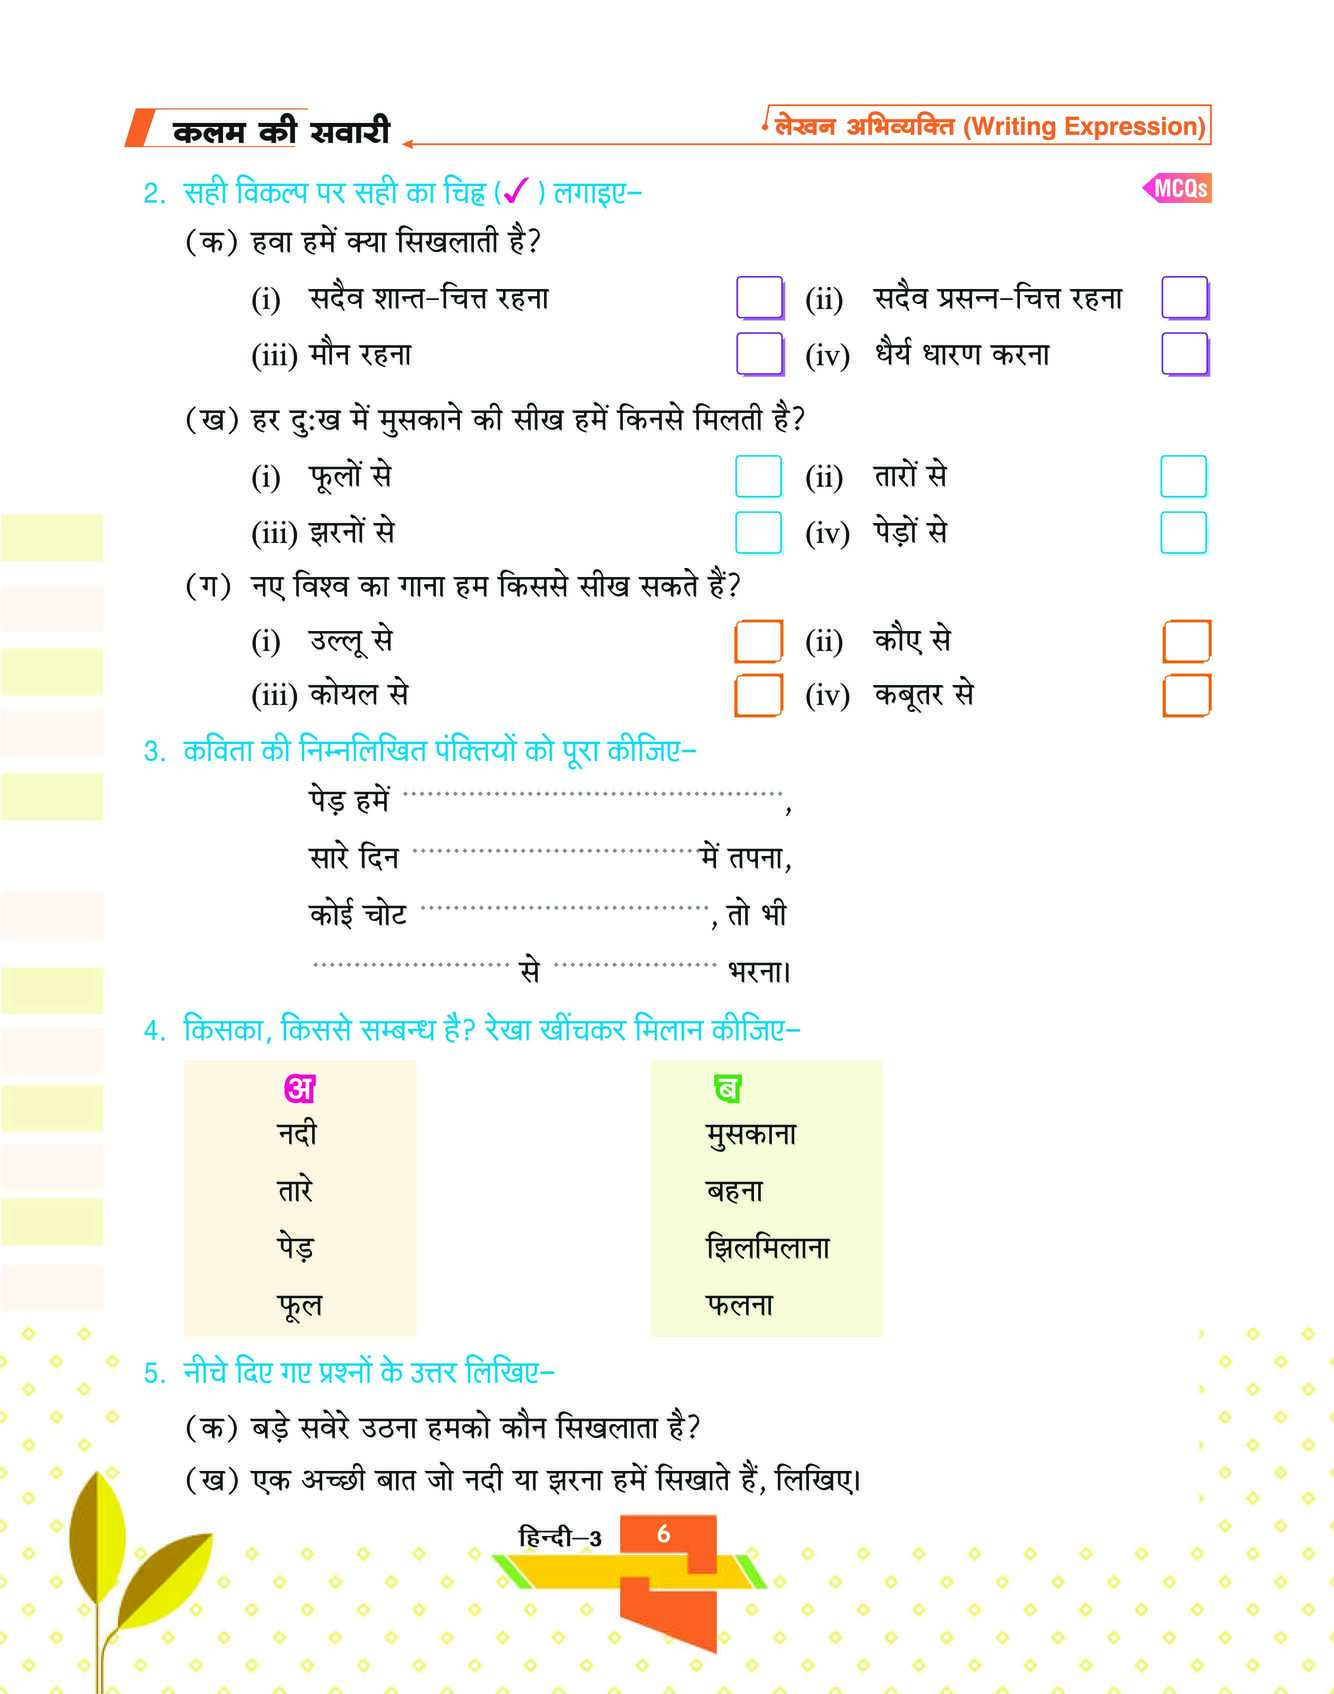 कलम की सवारी
लेखन अभिव्यक्ति (Writing Expression)
2. सही विकल्प पर सही का चिह्न (✓) लगाइए–
MCQs
(क) हवा हमें क्या सिखलाती है?
(i) सदैव शान्त-चित्त रहना (ii) सदैव प्रसन्न-चित्त रहना
(iii) मौन रहना (iv) धैर्य धारण करना
(ख) हर दुःख में मुसकाने की सीख हमें किनसे मिलती है?
(i) फूलों से (ii) तारों से
(iii) झरनों से (iv) पेड़ों से
(ग) नए विश्व का गाना हम किससे सीख सकते हैं?
(i) उल्लू से (ii) कौए से
(iii) कोयल से (iv) कबूतर से
3. कविता की निम्नलिखित पंक्तियों को पूरा कीजिए–
पेड़ हमें ..............................................,
सारे दिन ...................................में तपना,
कोई चोट ..................................., तो भी
........................ से .................... भरना।
4. किसका, किससे सम्बन्ध है? रेखा खींचकर मिलान कीजिए–
अ ब
नदी मुसकाना
तारे बहना
पेड़ झिलमिलाना
फूल फलना
5. नीचे दिए गए प्रश्नों के उत्तर लिखिए–
(क) बड़े सवेरे उठना हमको कौन सिखलाता है?
(ख) एक अच्छी बात जो नदी या झरना हमें सिखाते हैं, लिखिए।
हिन्दी–3 6